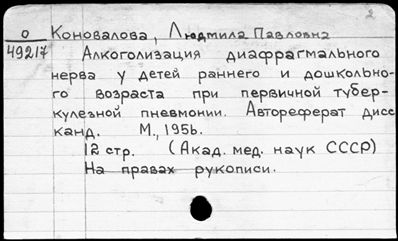 2
О Коновалова, Людмила Павловна
49217 Алкоголизация диафрагмального
нерва у детей раннего и дошкольно-
го возраста при первичной тубер-
кулезной пневмонии. Автореферат дисс
канд. М., 1956.
12 стр. (Акад. мед. наук СССР)
На правах рукописи.